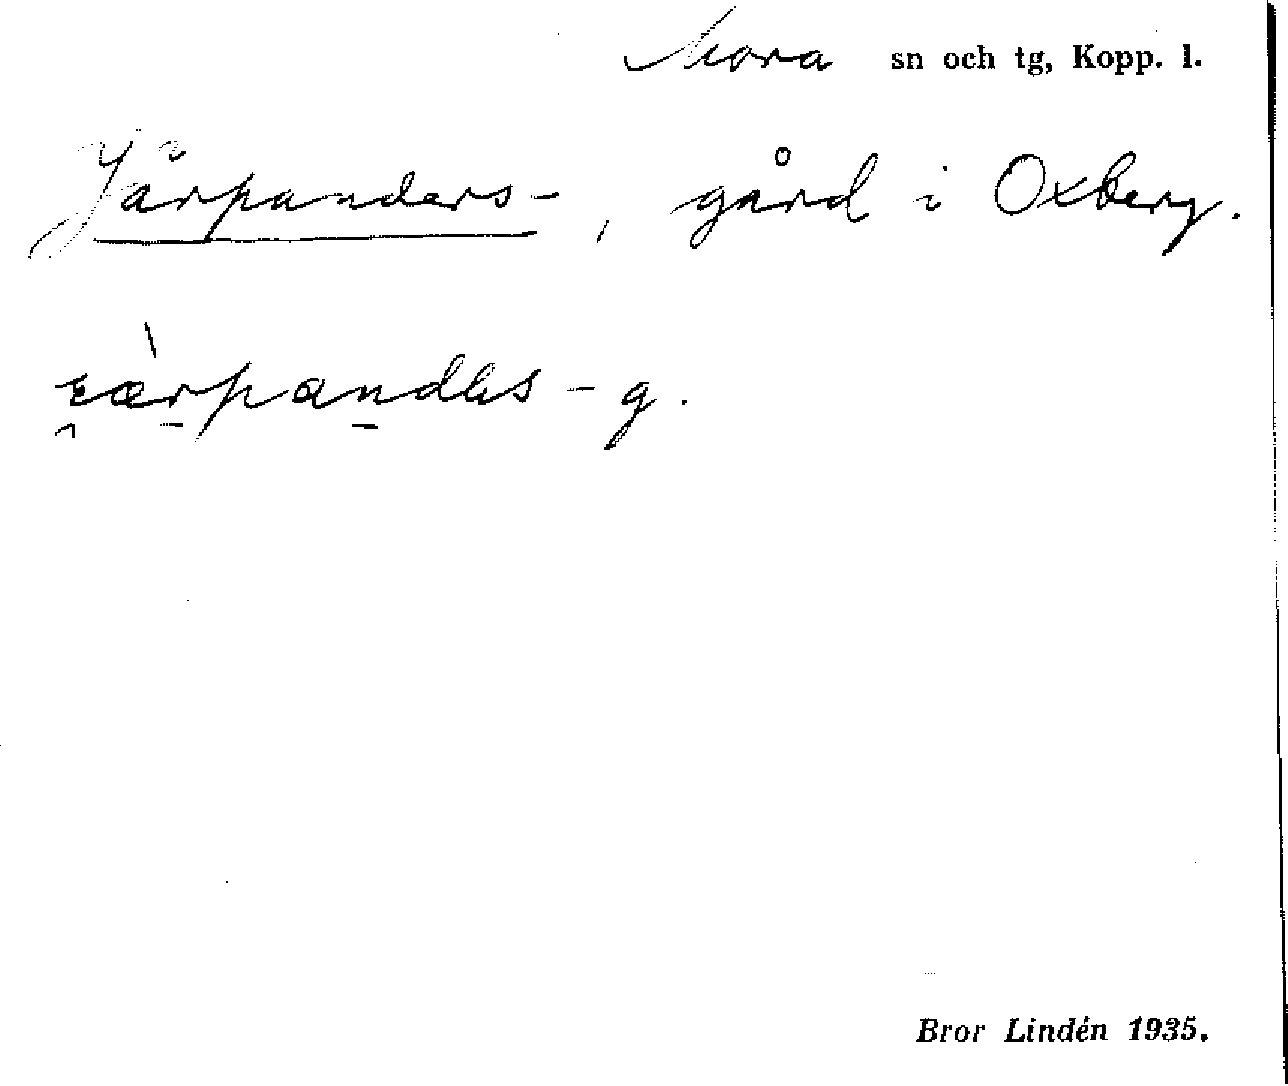 Mora sn och tg, Kopp. l.
Järpanders-, gård i Oxberg.
- g.
Bror Lindén 1935.